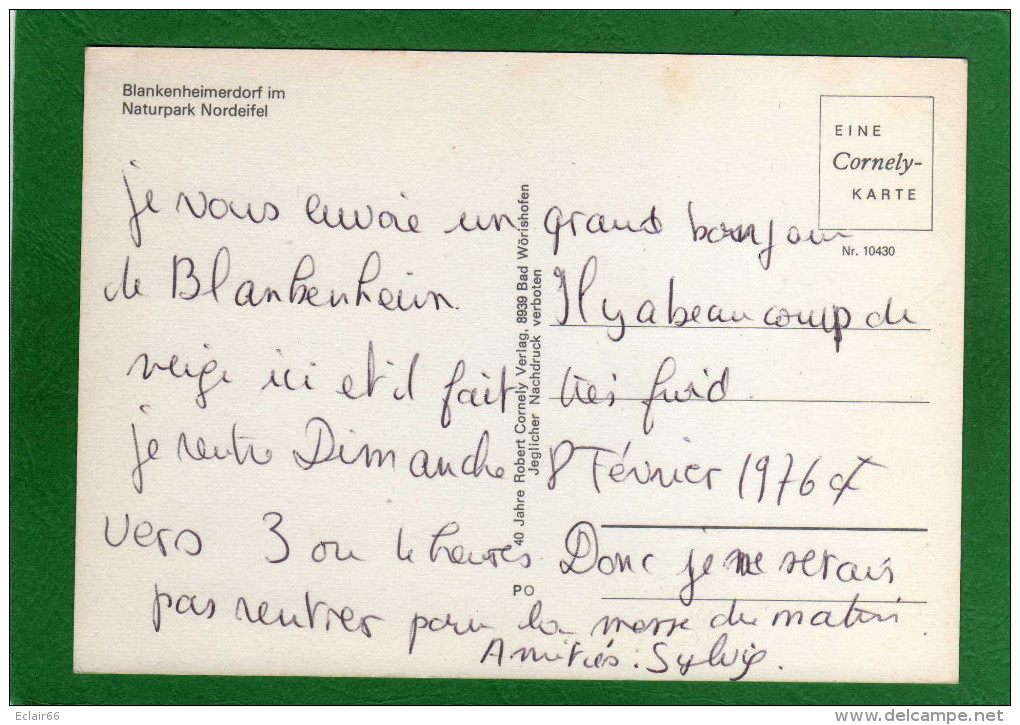 Blankenheimerdorf im
Naturpark Nordeifel
EINE
Cornely-
KARTE
Nr. 10430
je vous envoie un grand bonjour
de Blankenheim. Il y a beaucoup de
neige ici et il fait très froid.
je rentre Dimanche 8 Février 1976
vers 3 ou 4 heures Donc je ne serais
pas rentrer pour la messe du matin.
Amitiés. Sylvie.
40 Jahre Robert Cornely Verlag, 8939 Bad Wörishofen
Jeglicher Nachdruck verboten
PO
Eclair66
www.delcampe.net